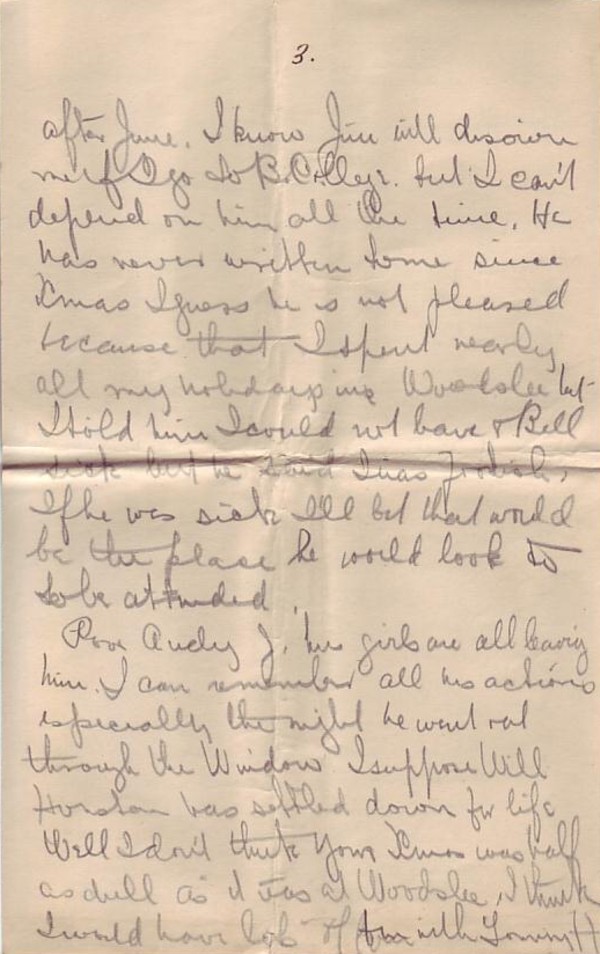 3.
after June. I know Jim will disown
me if I go to B. College. but I can't
depend on him all the time. He
has never written to me since
Xmas I guess he is not pleased
because that I spent nearly
all my holidays in Woodslee but
I told him I could not leave Bell
sick but he said I was foolish,
If he was sick I'll bet that would
be the place he would look to
to be attended.
Poor Andy J. his girls are all leaving
him. I can remember all his actions
especially the night he went out
through the Window I suppose Will
has settled down for life
Well I don't think your Xmas was half
as dull as it was at Woodslee, I think
I would have lots of fun with H